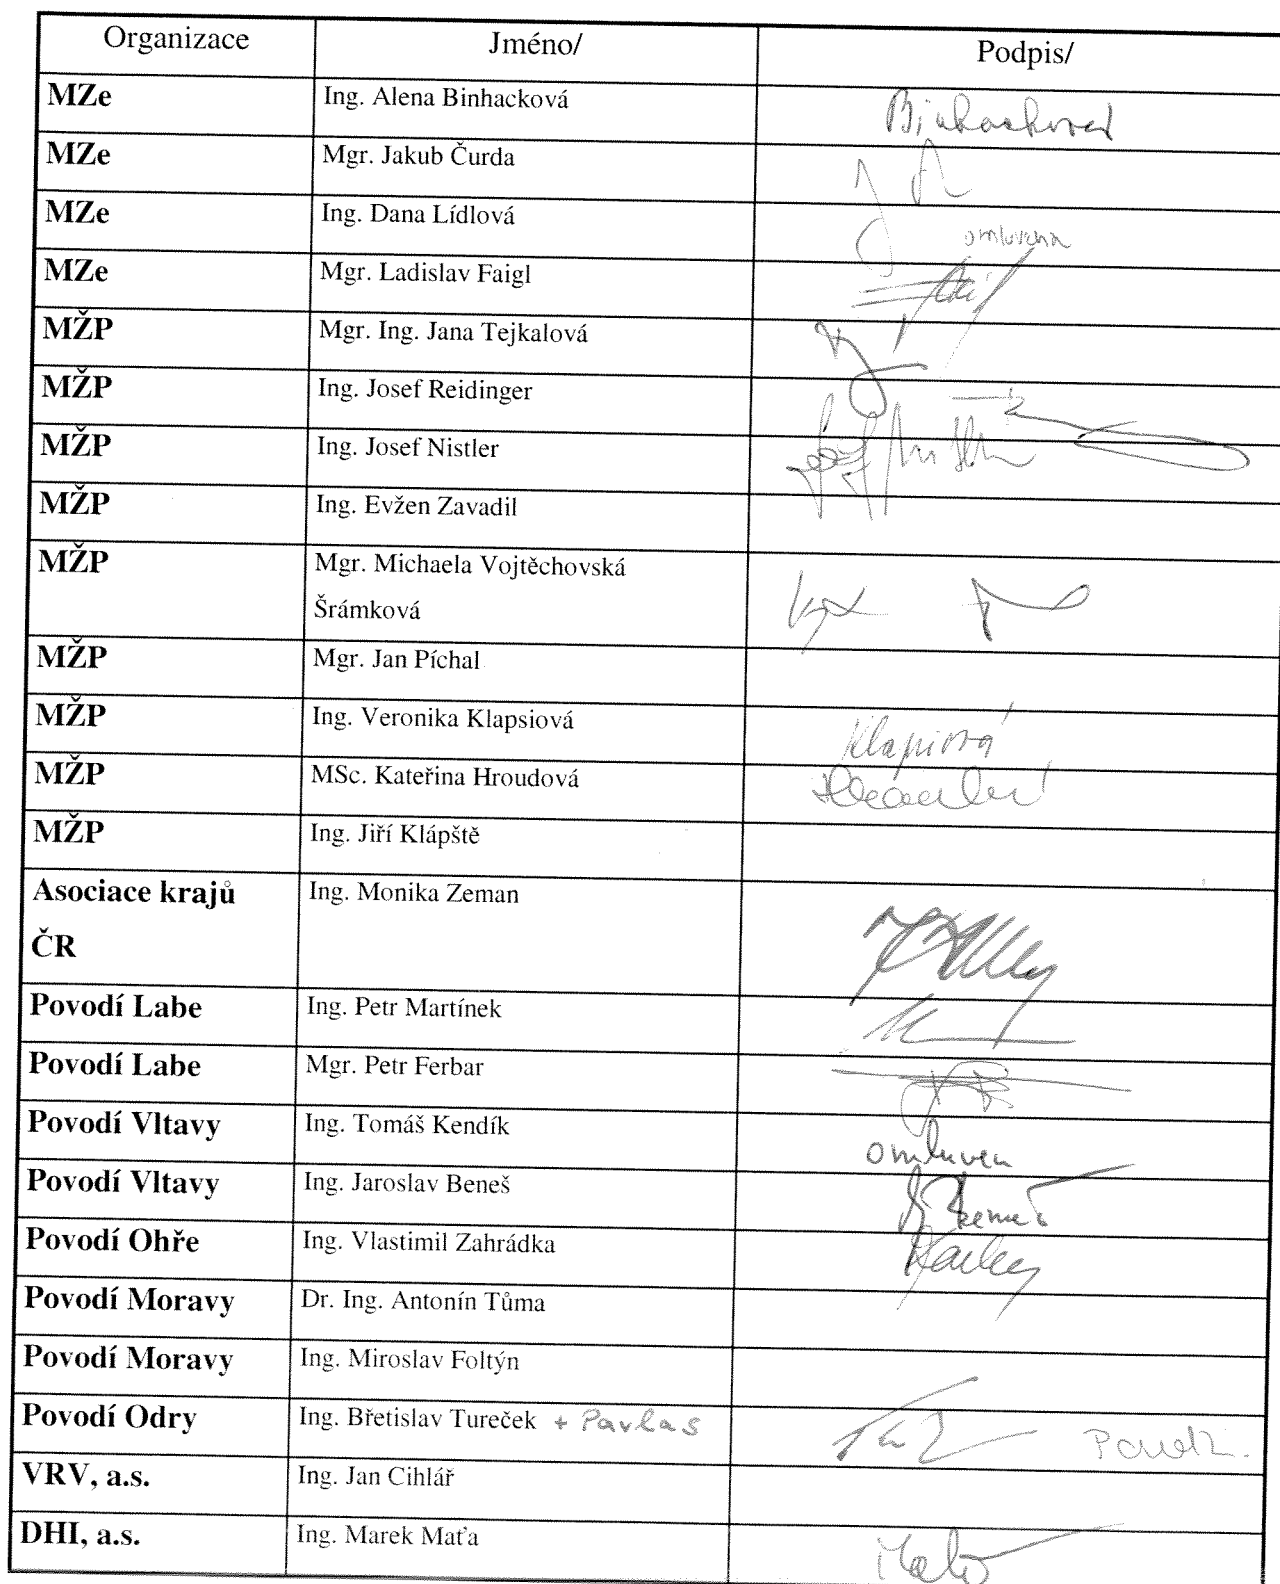 Organizace Jméno/ Podpis/
MZe Ing. Alena Binhacková Binhacková
MZe Mgr. Jakub Čurda
MZe Ing. Dana Lídlová omluvena
MZe Mgr. Ladislav Faigl
MŽP Mgr. Ing. Jana Tejkalová
MŽP Ing. Josef Reidinger
MŽP Ing. Josef Nistler
MŽP Ing. Evžen Zavadil
MŽP Mgr. Michaela Vojtěchovská
Šrámková
MŽP Mgr. Jan Píchal
MŽP Ing. Veronika Klapsiová
MŽP MSc. Kateřina Hroudová
MŽP Ing. Jiří Klápště
Asociace krajů Ing. Monika Zeman
ČR
Povodí Labe Ing. Petr Martínek
Povodí Labe Mgr. Petr Ferbar
Povodí Vltavy Ing. Tomáš Kendík omluven
Povodí Vltavy Ing. Jaroslav Beneš
Povodí Ohře Ing. Vlastimil Zahrádka
Povodí Moravy Dr. Ing. Antonín Tůma
Povodí Moravy Ing. Miroslav Foltýn
Povodí Odry Ing. Břetislav Tureček + Pavlas
VRV, a.s. Ing. Jan Cihlář
DHI, a.s. Ing. Marek Maťa